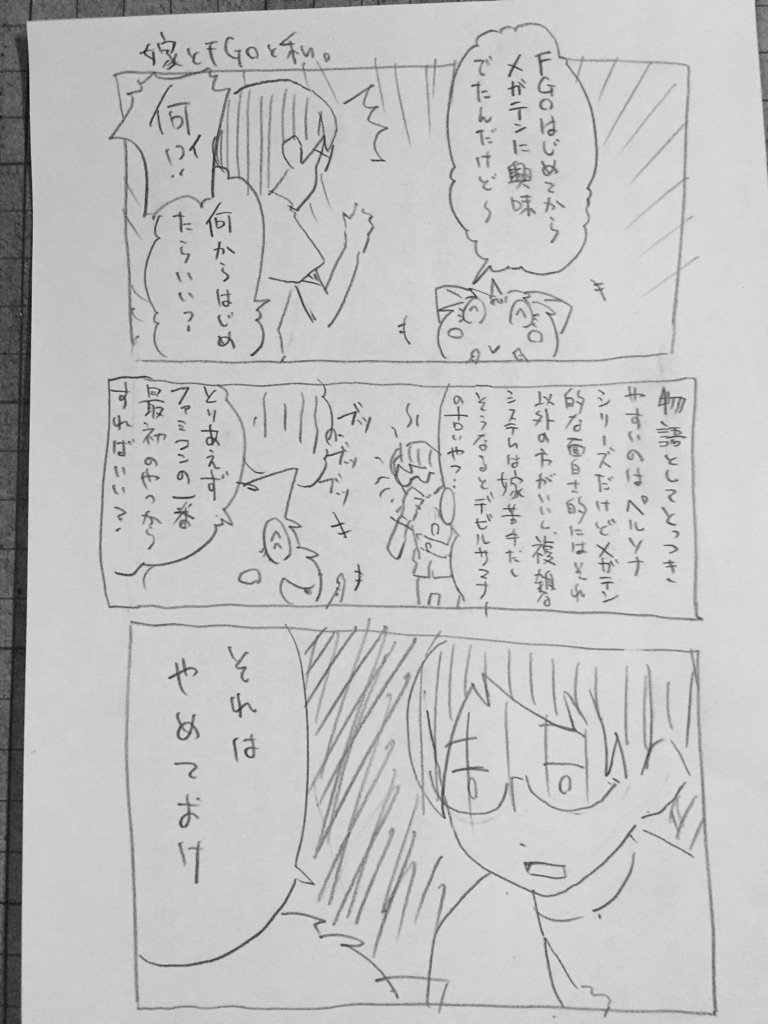 嫁とFGOと私。
FGOはじめてから
メガテンに興味
でたんだけど〜
何ィ!?
何からはじめ
たらいい?
物語としてとっつき
やすいのはペルソナ
シリーズだけどメガテン
的な面白さ的にはそれ
以外のがいいし、複雑な
システムは嫁苦手だし
そうなるとデビルサマナー
の古いやつ…
ブツ
ブツ
ブツ
とりあえず
ファミコンの一番
最初のやつから
すればいい?
それは
やめておけ